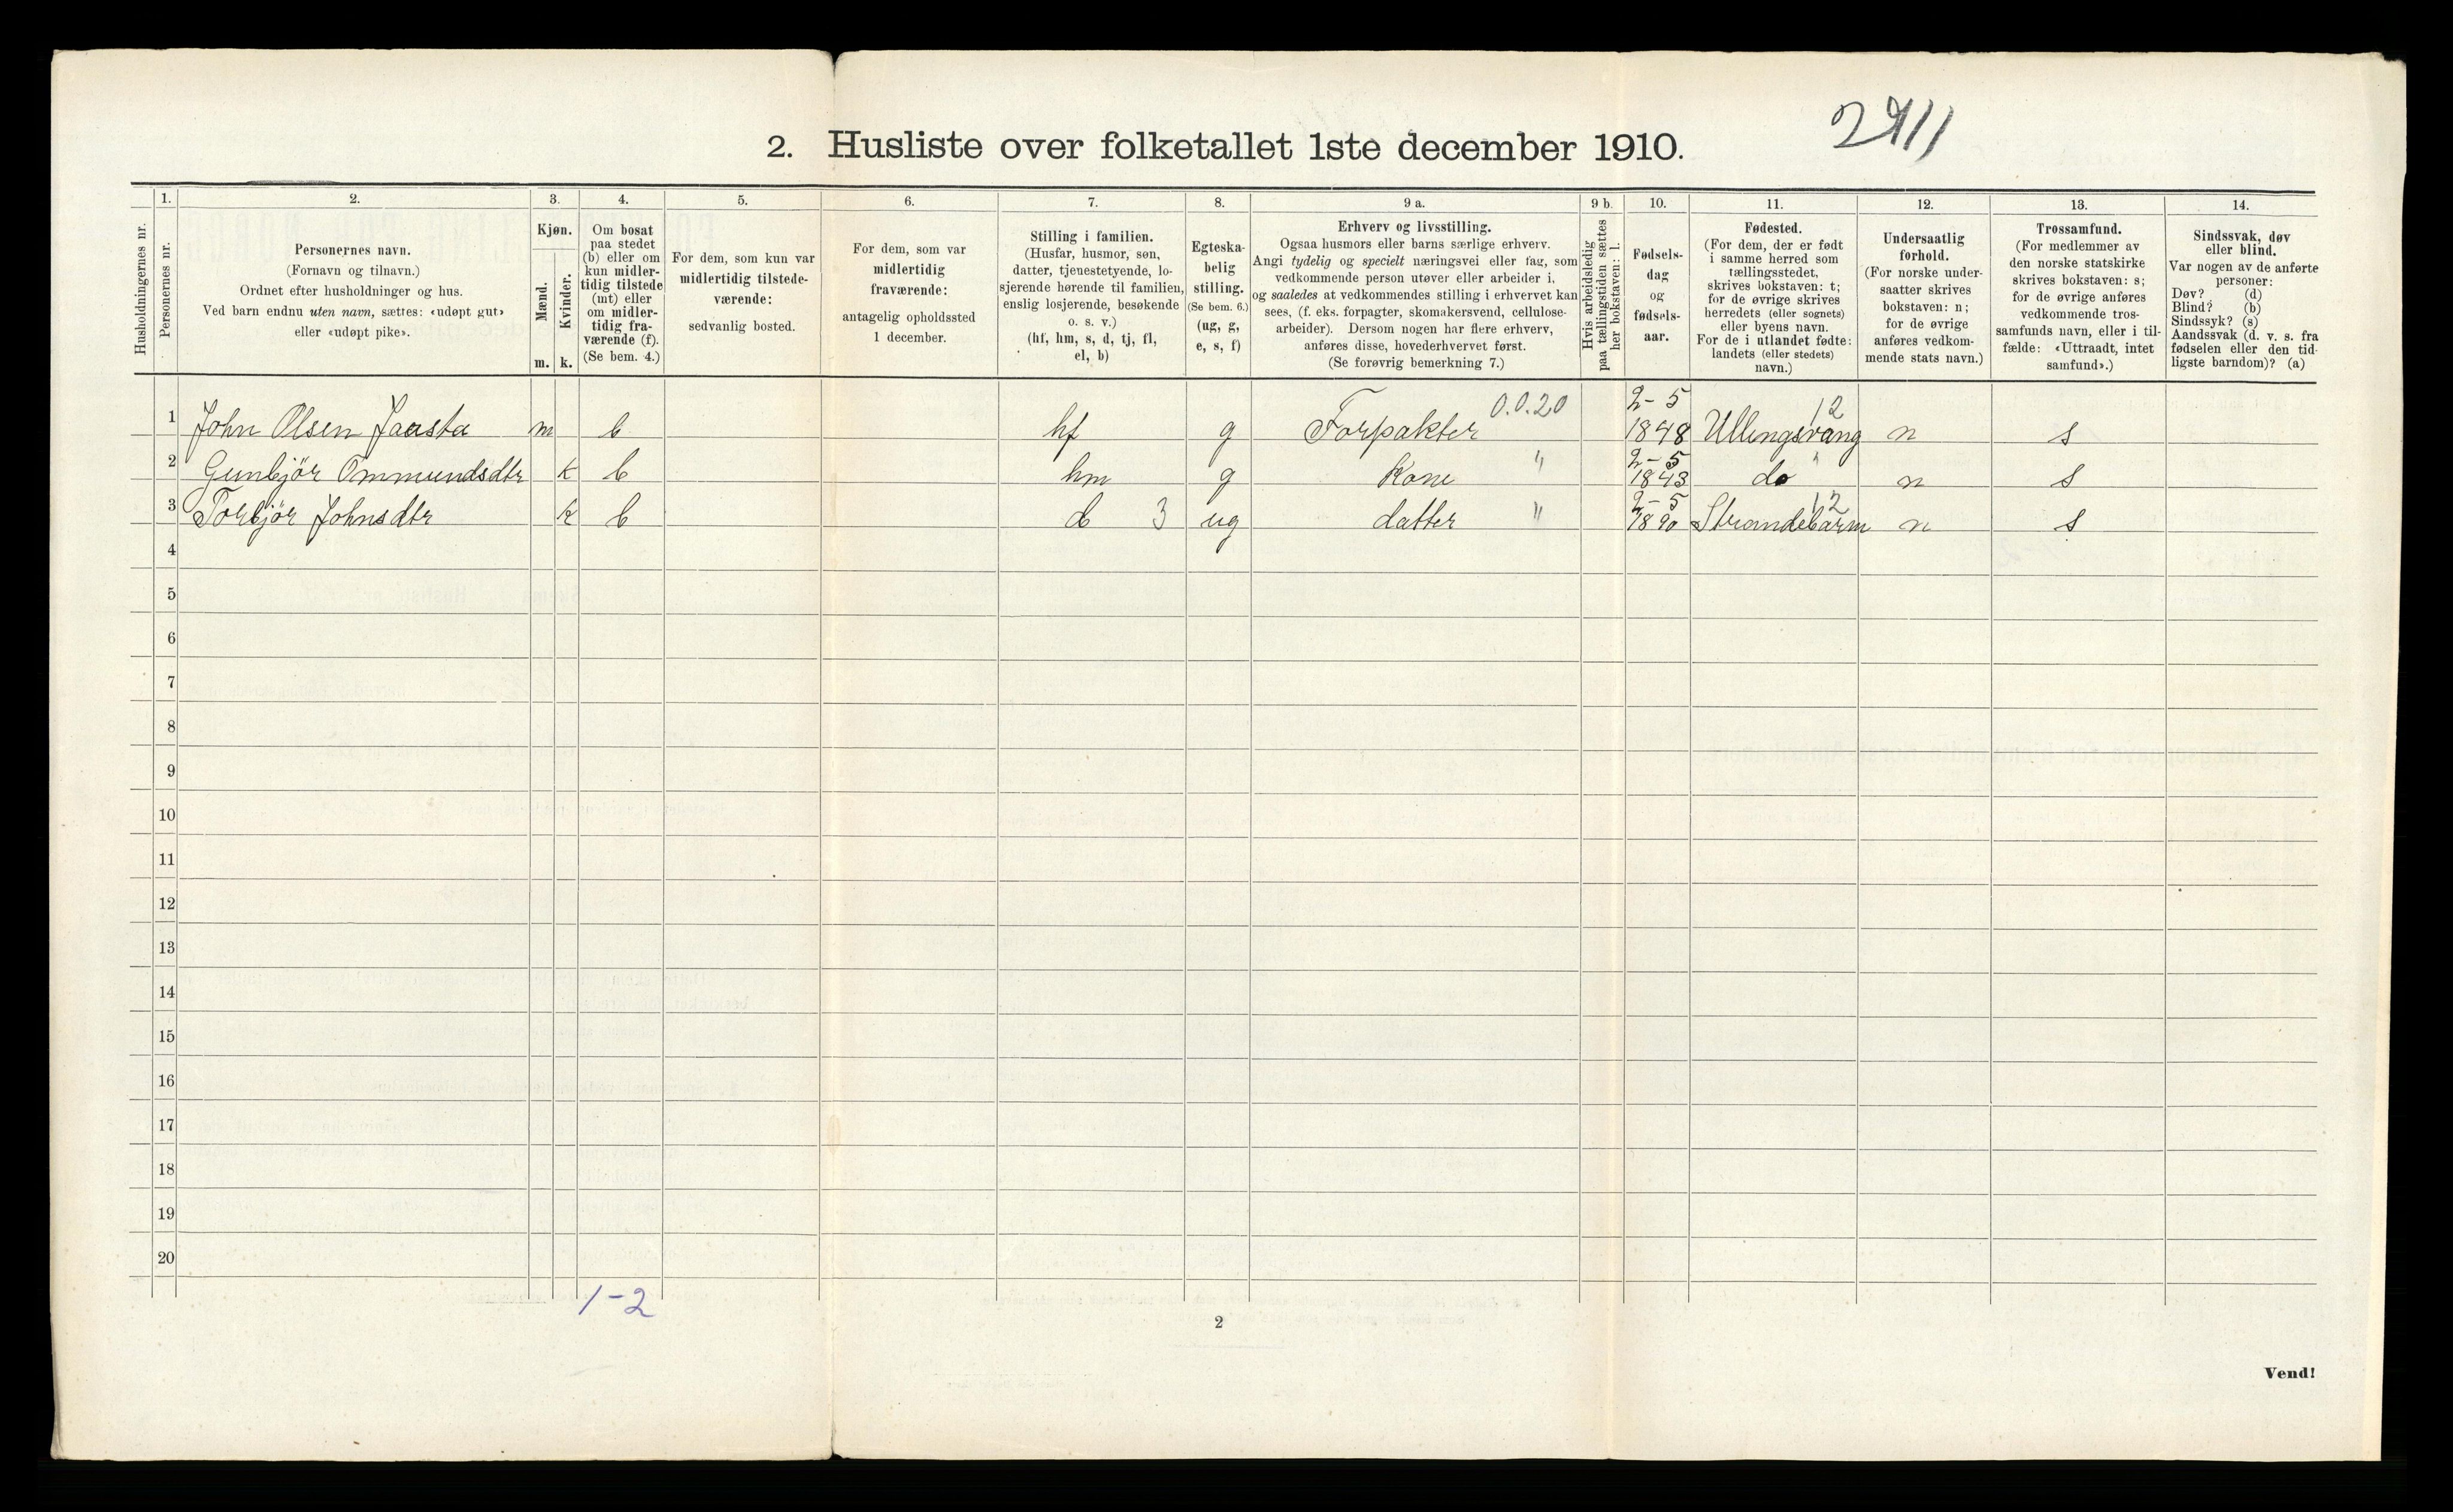 2911
2. Husliste over folketallet 1ste december 1910.
Husholdningernes nr.
1.
Personernes nr.
2.
Personernes navn.
(Fornavn og tilnavn.)
Ordnet efter husholdninger og hus.
Ved barn endnu uten navn, sættes: «udøpt gut»
eller «udøpt pike».
3.
Kjøn.
Mænd.
m.
Kvinder.
k.
4.
Om bosat
paa stedet
(b) eller om
kun midler-
tidig tilstede
(mt) eller
om midler-
tidig fra-
værende (f).
(Se bem. 4.)
5.
For dem, som kun var
midlertidig tilstede-
værende:
sedvanlig bosted.
6.
For dem, som var
midlertidig
fraværende:
antagelig opholdssted
1 december.
7.
Stilling i familien.
(Husfar, husmor, søn,
datter, tjenestetyende, lo-
sjerende hørende til familien,
enslig losjerende, besøkende
o. s. v.)
(hf, hm, s, d, tj, fl,
el, b)
8.
Egteska-
belig
stilling.
(Se bem. 6.)
(ug, g,
e, s, f)
9 a.
Erhverv og livsstilling.
Ogsaa husmors eller barns særlige erhverv.
Angi tydelig og specielt næringsvei eller fag, som
vedkommende person utøver eller arbeider i,
og saaledes at vedkommendes stilling i erhvervet kan
sees, (f. eks. forpagter, skomakersvend, cellulose-
arbeider). Dersom nogen har flere erhverv,
anføres disse, hovederhvervet først.
(Se forøvrig bemerkning 7.)
9 b.
Hvis arbeidsledig
paa tællingstiden sættes
her bokstaven: l.
10.
Fødsels-
dag
og
fødsels-
aar.
11.
Fødested.
(For dem, der er født
i samme herred som
tællingsstedet,
skrives bokstaven: t;
for de øvrige skrives
herredets (eller sognets)
eller byens navn.
For de i utlandet fødte:
landets (eller stedets)
navn.)
12.
Undersaatlig
forhold.
(For norske under-
saatter skrives
bokstaven: n;
for de øvrige
anføres vedkom-
mende stats navn.)
13.
Trossamfund.
(For medlemmer av
den norske statskirke
skrives bokstaven: s;
for de øvrige anføres
vedkommende tros-
samfunds navn, eller i til-
fælde: «Uttraadt, intet
samfund».)
14.
Sindssvak, døv
eller blind.
Var nogen av de anførte
personer:
Døv? (d)
Blind? (b)
Sindssyk? (s)
Aandssvak (d. v. s. fra
fødselen eller den tid-
ligste barndom)? (a)
1 John Olsen Jaasta m b hf g Forpakter 0.0.20 2-5 1848 Ullengsvang 12 n s
2 Gunbjör Ommundsdtr k b hm g Kone " 2-5 1843 do " n s
3 Torbjör Johnsdtr k b d 3 ug datter " 2-5 1890 Strandebarm 12 n s
4
5
6
7
8
9
10
11
12
13
14
15
16
17
18
19
20
1-2
2
Vend!